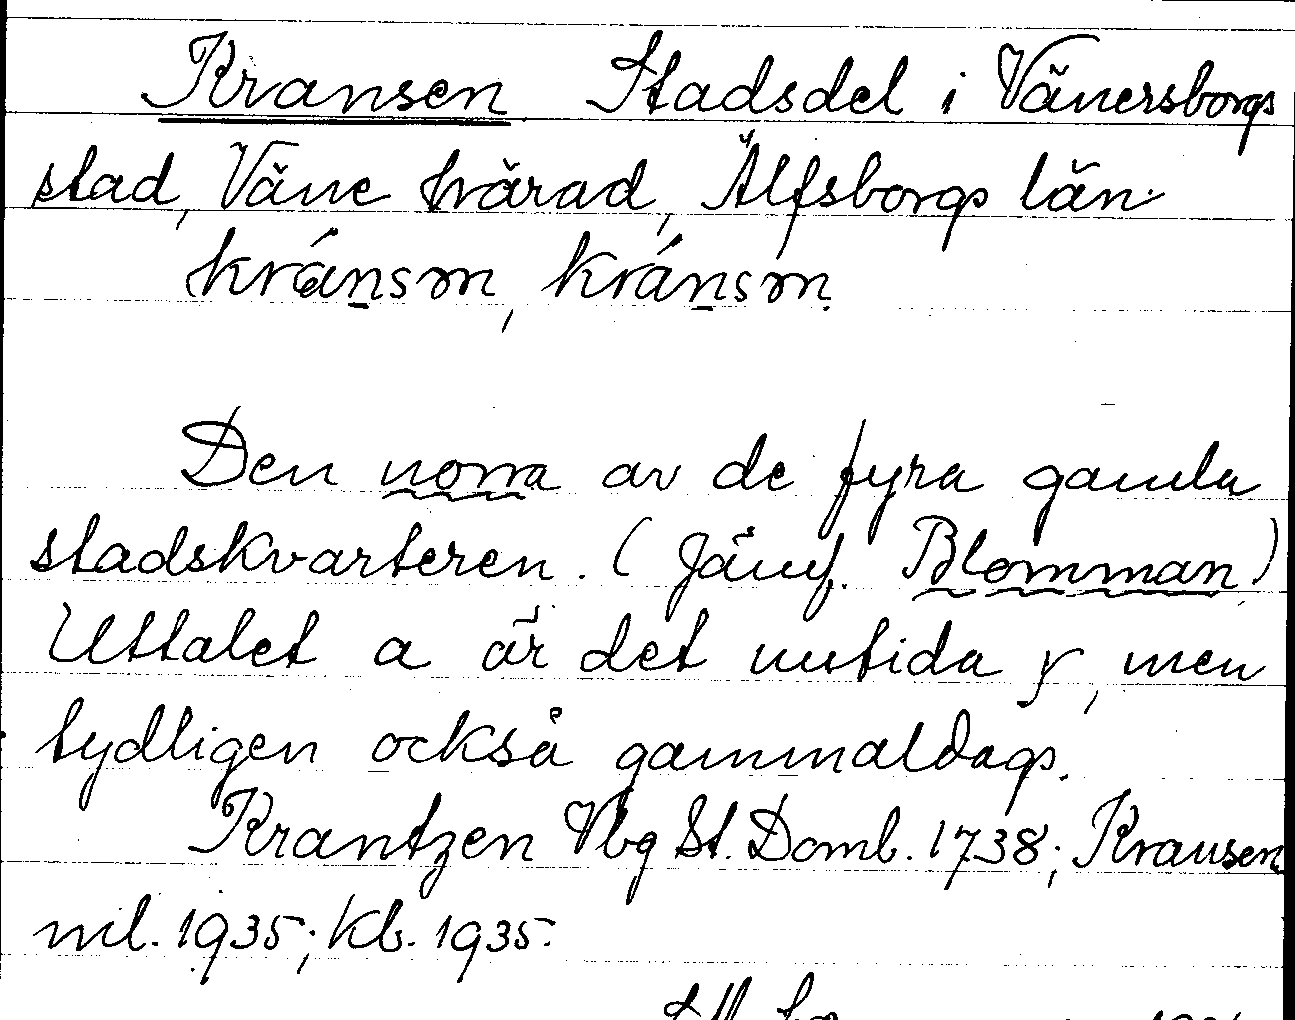 Kransen Stadsdel i Vänersborgs
stad, Väne härad, Älfsborgs län
kránsm, kránsm
Den norra av de fyra gamla
stadskvarteren. (Jämf. Blomman)
Uttalet a är det nutida, men
tydligen också gammaldags.
Krantzen Vbg St. Domb. 1738; Kransen
ml. 1935; Kb. 1935.